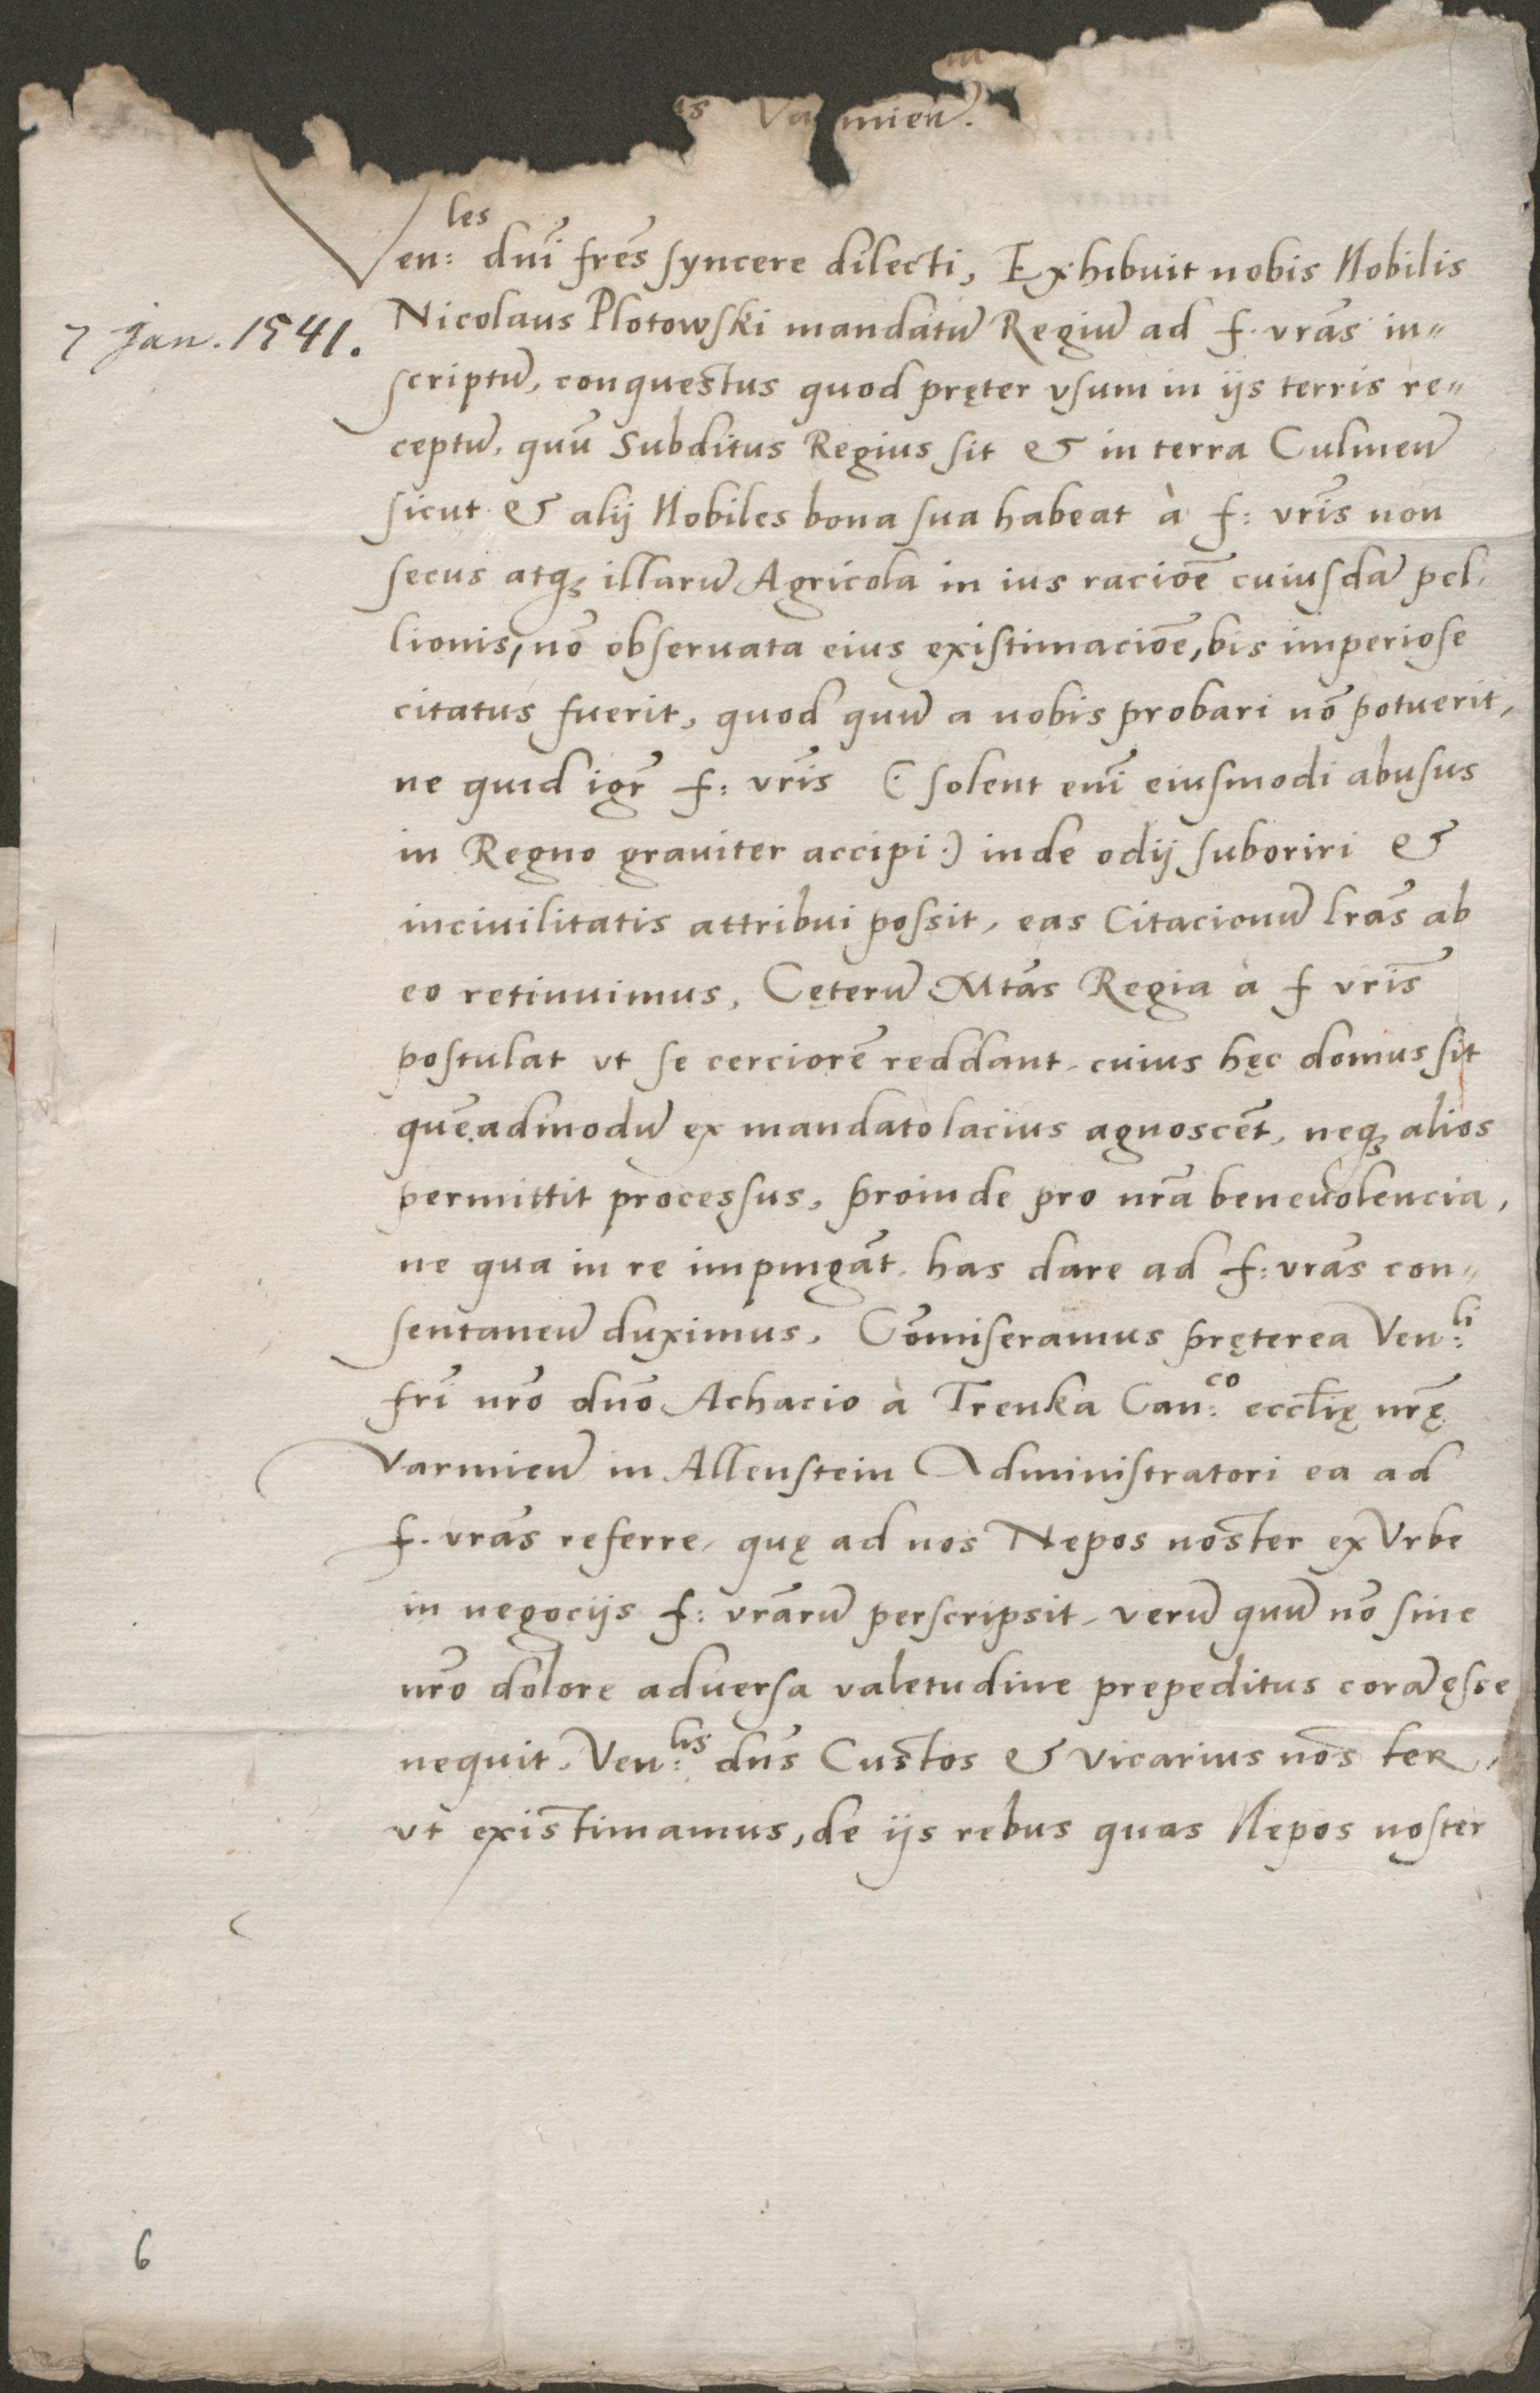 Varmien̄.
Ven:les dn̄i fr̄es syncere dilecti, Exhibuit nobis Nobilis
7 Jan. 1541.
Nicolaus Plotowski mandatū Regiū ad f. vr̄as in„
scriptū, conquestus quod pręter vsum in ijs terris re„
ceptū, quū Subditus Regius sit & in terra Culmen̄
sicut & alij Nobiles bona sua habeat à f: vr̄is non
secus atqꝫ illarū Agricola in ius racioē cuiusdā pel„
lionis, nō obseruata eius existimacioē, bis imperiose
citatus fuerit, quod quū a nobis probari nō potuerit,
ne quid igr̄ f: vr̄is (: solent eni̅ eiusmodi abusus
in Regno grauiter accipi :) inde odij suboriri &
inciuilitatis attribui possit, eas Citacionū lr̄as ab
eo retinuimus, Cęterū Mtās Regia à f vr̄is
postulat vt se cerciorē reddant, cuius hęc domus sit
quēadmodū ex mandato lacius agnoscēt, neqꝫ alios
permittit processus, proinde pro nr̄a beneuolencia,
ne qua in re impingāt, has dare ad f: vr̄as con„
sentaneū duximus, Cōmiseramus pręterea Ven:li
fr̄i nr̄o dn̄o Achacio à Trenka Can:co eccl̄ię nr̄ę
Varmien̄ in Allenstein Administratori ea ad
f. vr̄as referre, quę ad nos Nepos noster ex Vrbe
in negocijs f: vr̄arū perscripsit, verū quū nō sine
nr̄o dolore aduersa valetudine prepeditus corā ęsse
nequit, Ven:lis dn̄s Custos & vicarius noster,
vt existimamus, de ijs rebus quas Nepos noster
6